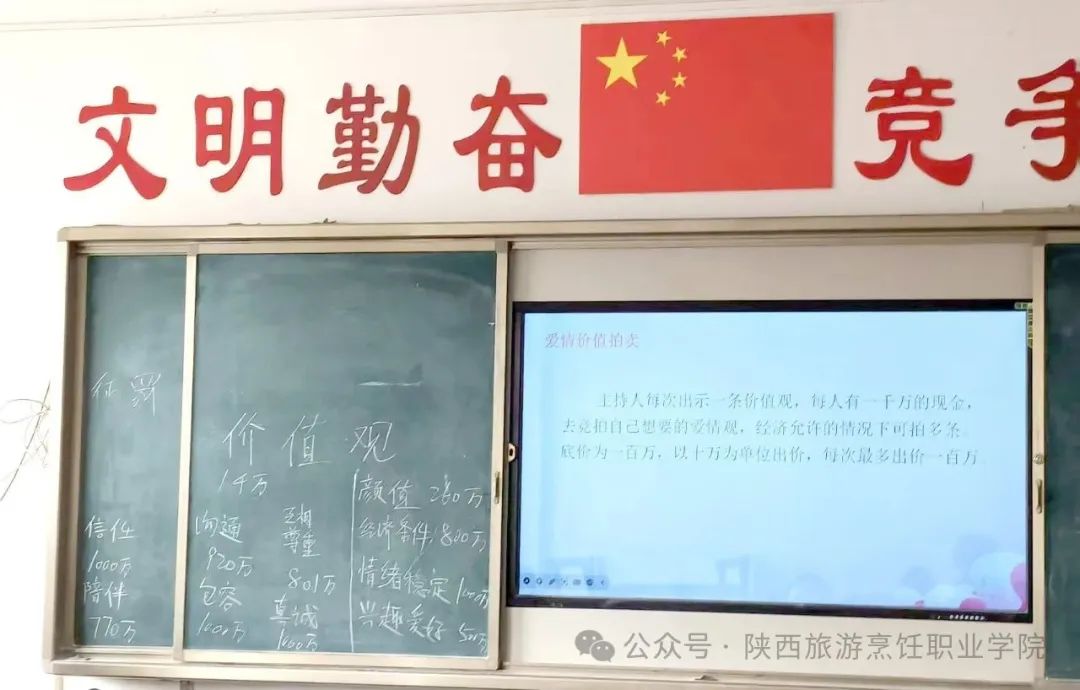 文明勤奋 竞争
爱情价值拍卖
主持人每次出示一条价值观，每人有一千万的现金，
去竞拍自己想要的爱情观，经济允许的情况下可拍多条。
底价为一百万，以十万为单位出价，每次最多出价一百万
价值观
1千万
信任
1000万
陪伴
770万
沟通
920万
包容
1000万
互相
尊重
801万
真诚
1000万
颜值 280万
经济条件 800万
情绪稳定 1000万
兴趣爱好 500万
公众号·陕西旅游烹饪职业学院